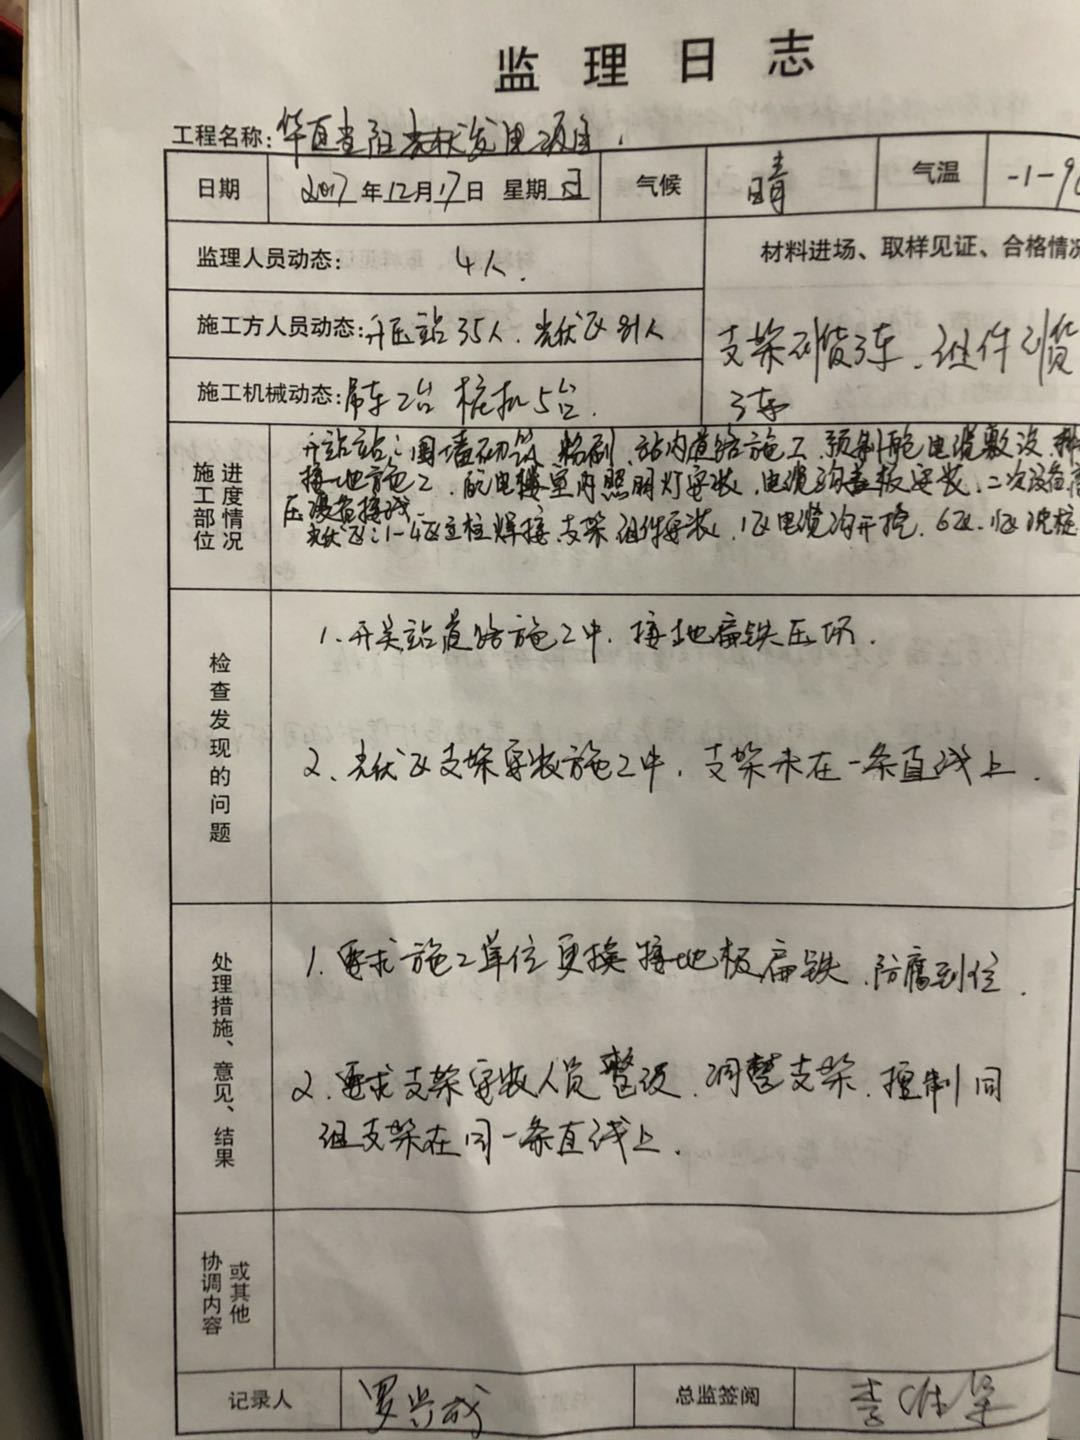 监理日志
工程名称: 华直 光伏发电项目.
日期 2017年12月17日 星期日 气候 晴 气温 -1-9
监理人员动态: 4人. 材料进场、取样见证、合格情况
施工方人员动态: 升压站35人. 光伏区81人 支架到货3车. 组件到货
施工机械动态: 吊车2台 桩机5台. 3车
施工部位 进度情况 开站站: 围墙砌筑 粉刷. 站内道路施工. 预制舱电缆敷设.
接地施工. 配电楼室内照明灯安装. 电缆沟盖板安装. 二次设备高
压设备接线.
光伏区: 1-4区立柱焊接. 支架组件安装. 1区电缆沟开挖. 6区. 沉桩
检查发现的问题
1. 开关站道路施工中. 接地扁铁压坏.
2. 光伏区支架安装施工中. 支架未在一条直线上.
处理措施、意见、结果
1. 要求施工单位更换接地极扁铁. 防腐到位.
2. 要求支架安装人员整改. 调整支架. 控制同
组支架在同一条直线上.
协调内容 或其他
记录人 罗兴成 总监签阅 李